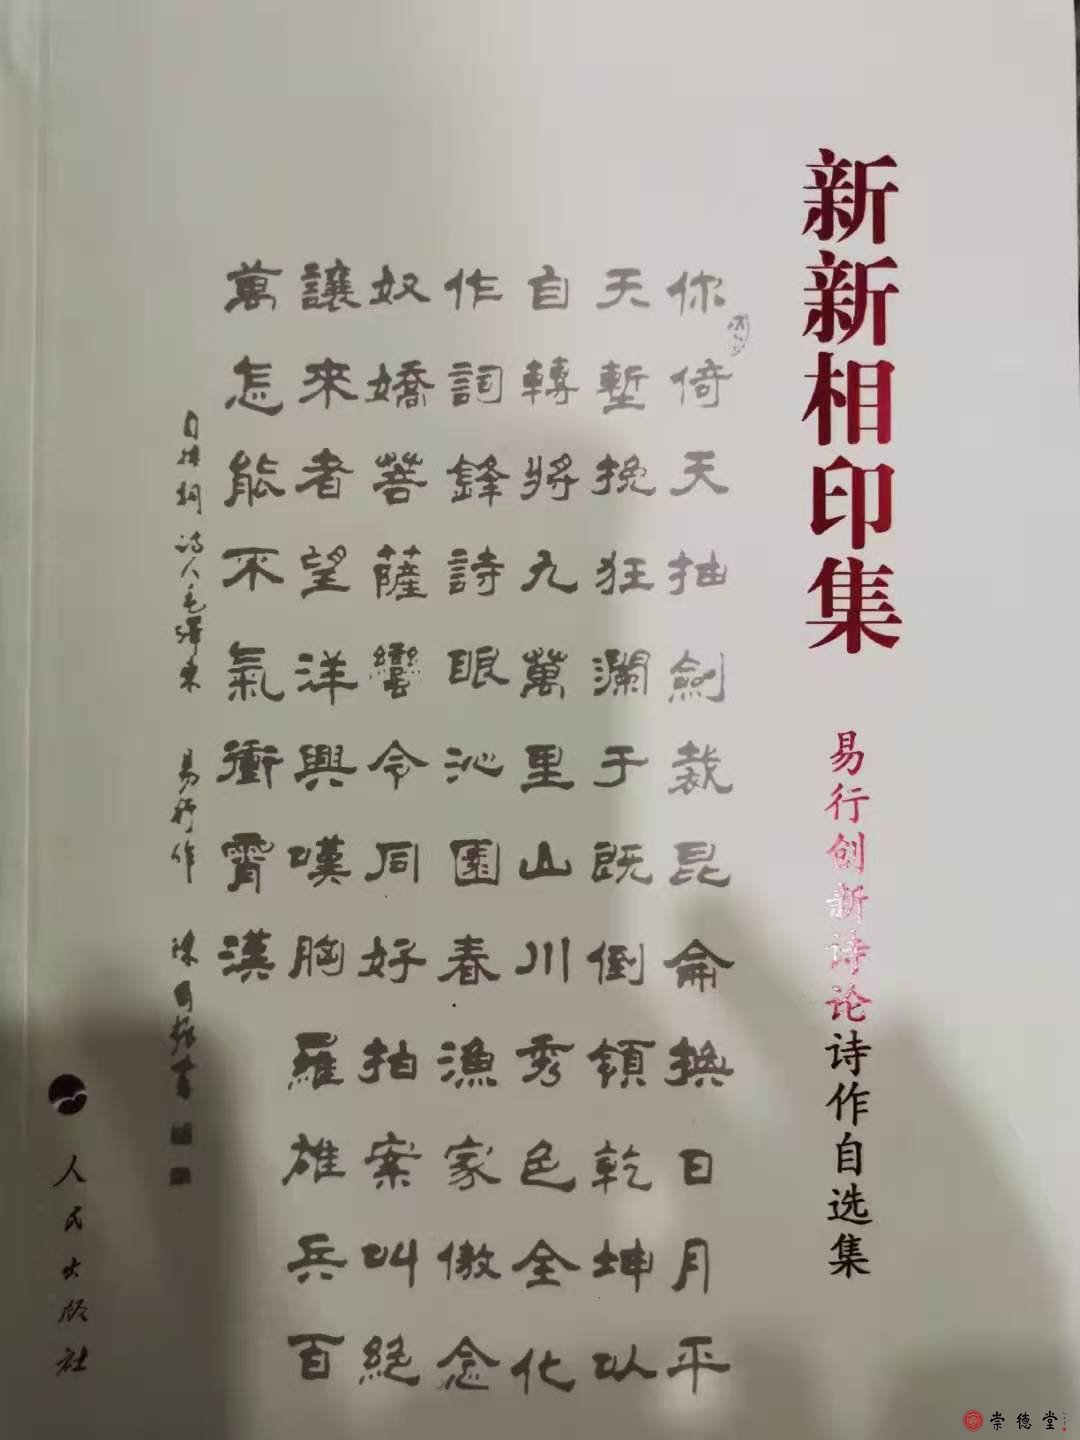 新新相印集
易行创新诗论诗作自选集
你倚天抽劍裁昆侖換日月平
天塹挽狂瀾于既倒領乾坤以
自轉將九萬里山川秀色全化
作詞鋒詩眼沁園春漁家傲念
奴嬌菩薩蠻令同好拍案叫絕
讓來者望洋興嘆胸羅雄兵百
萬怎能不氣衝霄漢
自度詞 詩人毛澤東 易行作 書
人民出版社
崇德堂